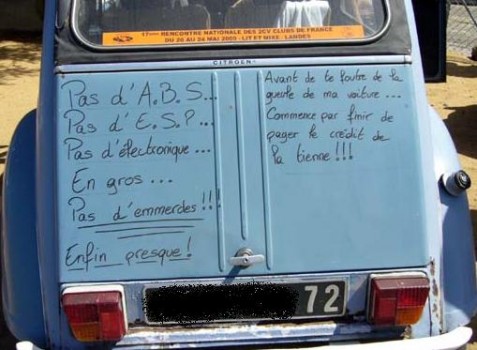 17ème RENCONTRE NATIONALE DES 2CV CLUBS DE FRANCE
DU 20 AU 24 MAI 2009 - LIT ET MIXE - LANDES
CITROËN
Pas d'A.B.S...
Pas d'E.S.P...
Pas d'électronique...
En gros ...
Pas d'emmerdes !!!
Enfin presque !
Avant de te foutre de la
gueule de ma voiture ...
Commence par finir de
payer le crédit de
la tienne !!!
72